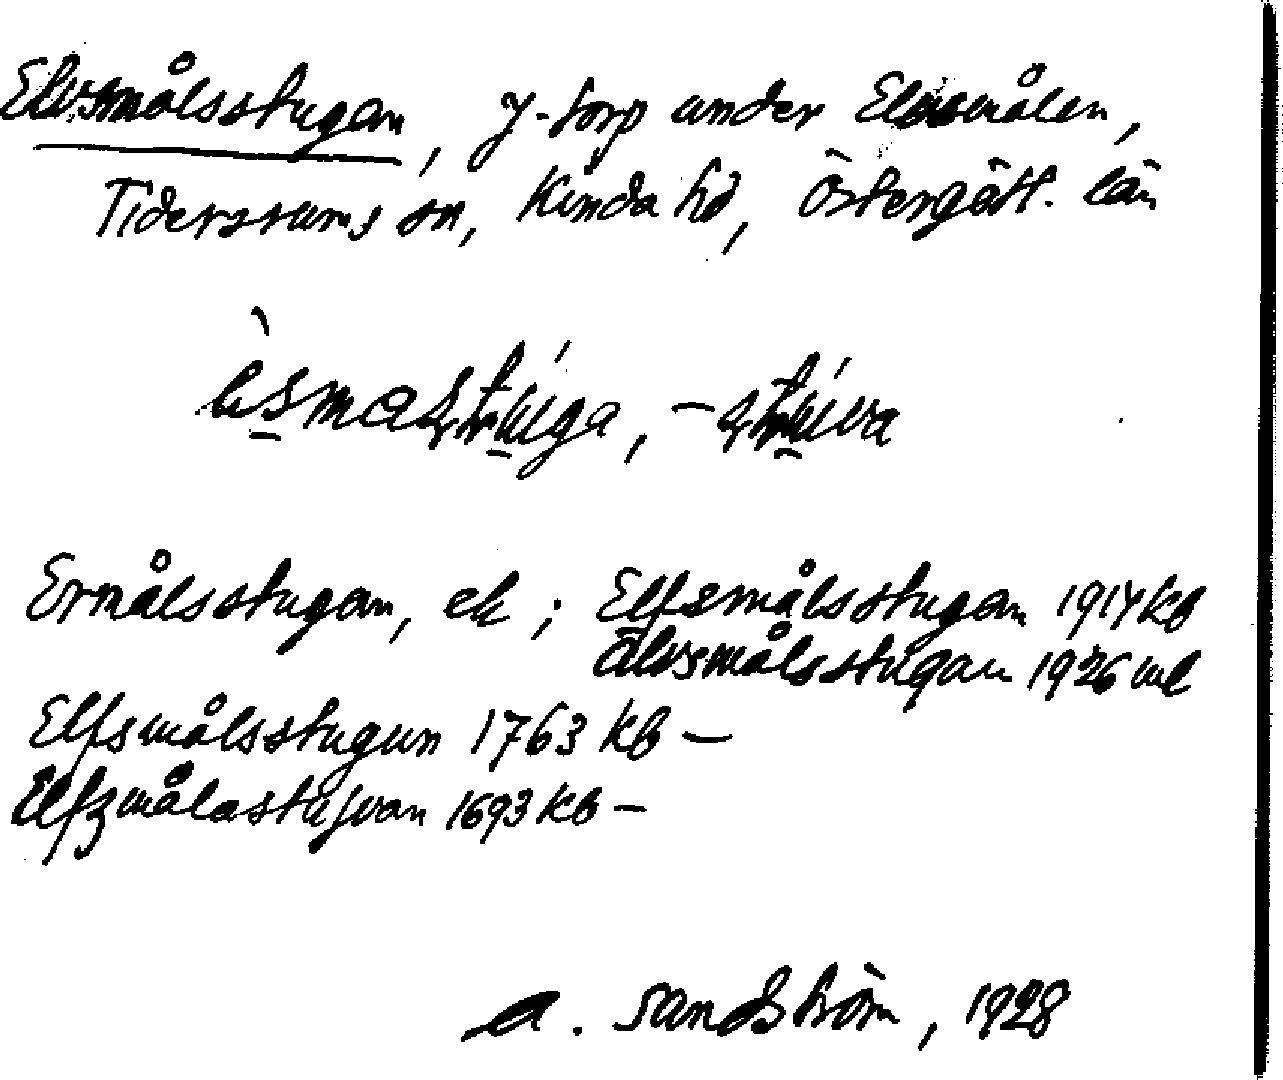 Elvsmålsstugan, J-torp under Elvsmålen,
Tidersrums sn, Kinda hd, Östergötl. län
Ermålsstugan, ek; Elfsmålsstugan 1917 kb
Älvsmålsstugan 1926 ml
Elfsmålsstugun 1763 kb —
Elfzmålastufvan 1693 kb —
A. Sandström, 1928